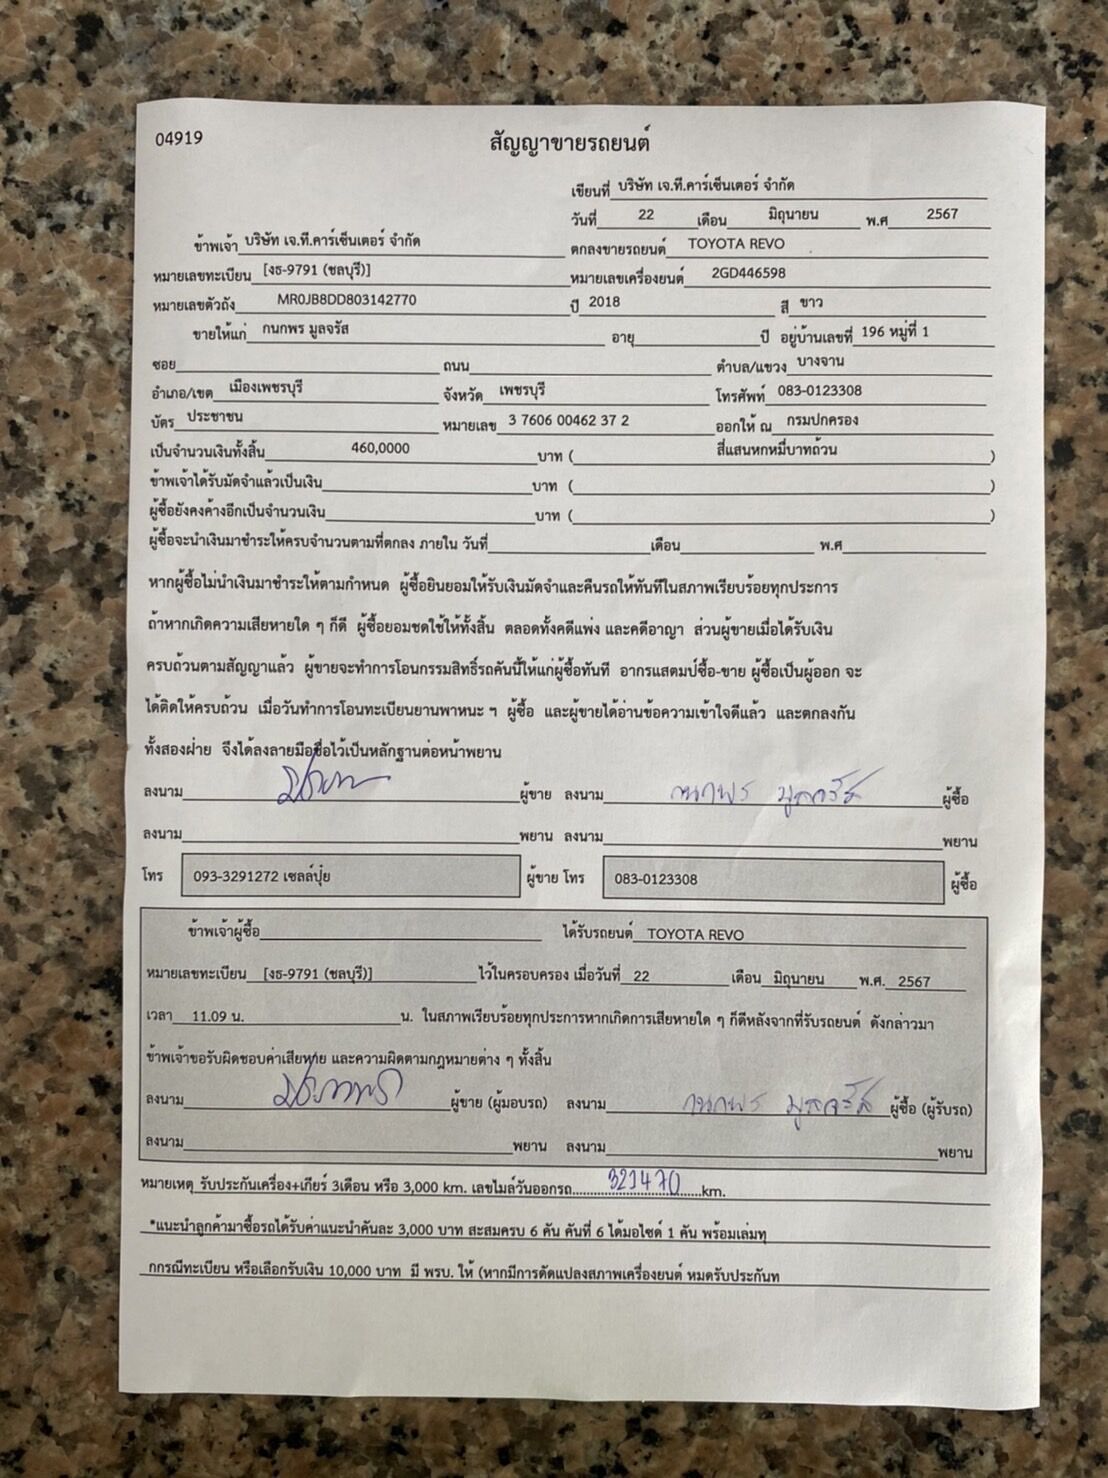 04919
สัญญาขายรถยนต์
เขียนที่ บริษัท เจ.ที.คาร์เซ็นเตอร์ จำกัด
วันที่ 22 เดือน มิถุนายน พ.ศ 2567
ข้าพเจ้า บริษัท เจ.ที.คาร์เซ็นเตอร์ จำกัด ตกลงขายรถยนต์ TOYOTA REVO
หมายเลขทะเบียน [งธ-9791 (ชลบุรี)] หมายเลขเครื่องยนต์ 2GD446598
หมายเลขตัวถัง MR0JB8DD803142770 ปี 2018 สี ขาว
ขายให้แก่ กนกพร มูลจรัส อายุ ปี อยู่บ้านเลขที่ 196 หมู่ที่ 1
ซอย ถนน ตำบล/แขวง บางจาน
อำเภอ/เขต เมืองเพชรบุรี จังหวัด เพชรบุรี โทรศัพท์ 083-0123308
บัตร ประชาชน หมายเลข 3 7606 00462 37 2 ออกให้ ณ กรมปกครอง
เป็นจำนวนเงินทั้งสิ้น 460,0000 บาท ( สี่แสนหกหมื่บาทถ้วน )
ข้าพเจ้าได้รับมัดจำแล้วเป็นเงิน บาท ( )
ผู้ซื้อยังคงค้างอีกเป็นจำนวนเงิน บาท ( )
ผู้ซื้อจะนำเงินมาชำระให้ครบจำนวนตามที่ตกลง ภายใน วันที่ เดือน พ.ศ
หากผู้ซื้อไม่นำเงินมาชำระให้ตามกำหนด ผู้ซื้อยินยอมให้รับเงินมัดจำและคืนรถให้ทันทีในสภาพเรียบร้อยทุกประการ
ถ้าหากเกิดความเสียหายใด ๆ ก็ดี ผู้ซื้อยอมชดใช้ให้ทั้งสิ้น ตลอดทั้งคดีแพ่ง และคดีอาญา ส่วนผู้ขายเมื่อได้รับเงิน
ครบถ้วนตามสัญญาแล้ว ผู้ขายจะทำการโอนกรรมสิทธิ์รถคันนี้ให้แก่ผู้ซื้อทันที อากรแสตมป์ซื้อ-ขาย ผู้ซื้อเป็นผู้ออก จะ
ได้ติดให้ครบถ้วน เมื่อวันทำการโอนทะเบียนยานพาหนะ ฯ ผู้ซื้อ และผู้ขายได้อ่านข้อความเข้าใจดีแล้ว และตกลงกัน
ทั้งสองฝ่าย จึงได้ลงลายมือชื่อไว้เป็นหลักฐานต่อหน้าพยาน
ลงนาม ผู้ขาย ลงนาม กนกพร มูลจรัส ผู้ซื้อ
ลงนาม พยาน ลงนาม พยาน
โทร 093-3291272 เซลล์ปุ๋ย ผู้ขาย โทร 083-0123308 ผู้ซื้อ
ข้าพเจ้าผู้ซื้อ ได้รับรถยนต์ TOYOTA REVO
หมายเลขทะเบียน [งธ-9791 (ชลบุรี)] ไว้ในครอบครอง เมื่อวันที่ 22 เดือน มิถุนายน พ.ศ. 2567
เวลา 11.09 น. น. ในสภาพเรียบร้อยทุกประการหากเกิดการเสียหายใด ๆ ก็ดีหลังจากที่รับรถยนต์ ดังกล่าวมา
ข้าพเจ้าขอรับผิดชอบค่าเสียหาย และความผิดตามกฎหมายต่าง ๆ ทั้งสิ้น
ลงนาม ผู้ขาย (ผู้มอบรถ) ลงนาม กนกพร มูลจรัส ผู้ซื้อ (ผู้รับรถ)
ลงนาม พยาน ลงนาม พยาน
หมายเหตุ รับประกันเครื่อง+เกียร์ 3เดือน หรือ 3,000 km. เลขไมล์วันออกรถ 321470 km.
*แนะนำลูกค้ามาซื้อรถได้รับค่าแนะนำคันละ 3,000 บาท สะสมครบ 6 คัน คันที่ 6 ได้มอไซด์ 1 คัน พร้อมเล่มทุ
กกรณีทะเบียน หรือเลือกรับเงิน 10,000 บาท มี พรบ. ให้ (หากมีการดัดแปลงสภาพเครื่องยนต์ หมดรับประกันท